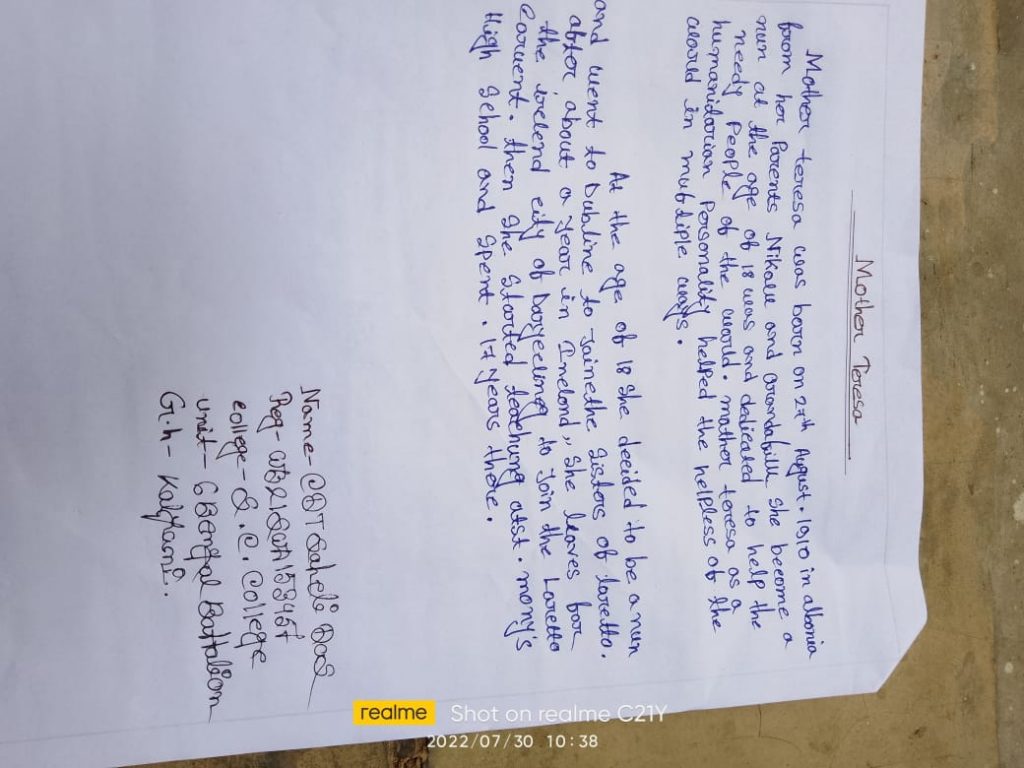 Mother Teresa
Mother teresa was born on 27th August. 1910 in albania
from her Parents Nikalle and she become a
nun at the age of 18 was and dedicated to help the
needy People of the world. mother teresa as a
humanidarian Personality helped the helpless of the
world in mubdiple ways.
At the age of 18 she decided to be a nun
and went to Dubline to Jainethe Sisters of loretto.
abter about a year in Ireland, she leaves bor
the irelend city of Darjeeling to Join the Loretto
Convent. then she Started teaching atst. mony's
High School and Spent. 17 years there.
Name - CDT Saheli Das
Reg -
college - S. C. College
unit - 6 Bengal Battaliom
G.h - Kalyani.
realme Shot on realme C21Y
2022/07/30 10:38